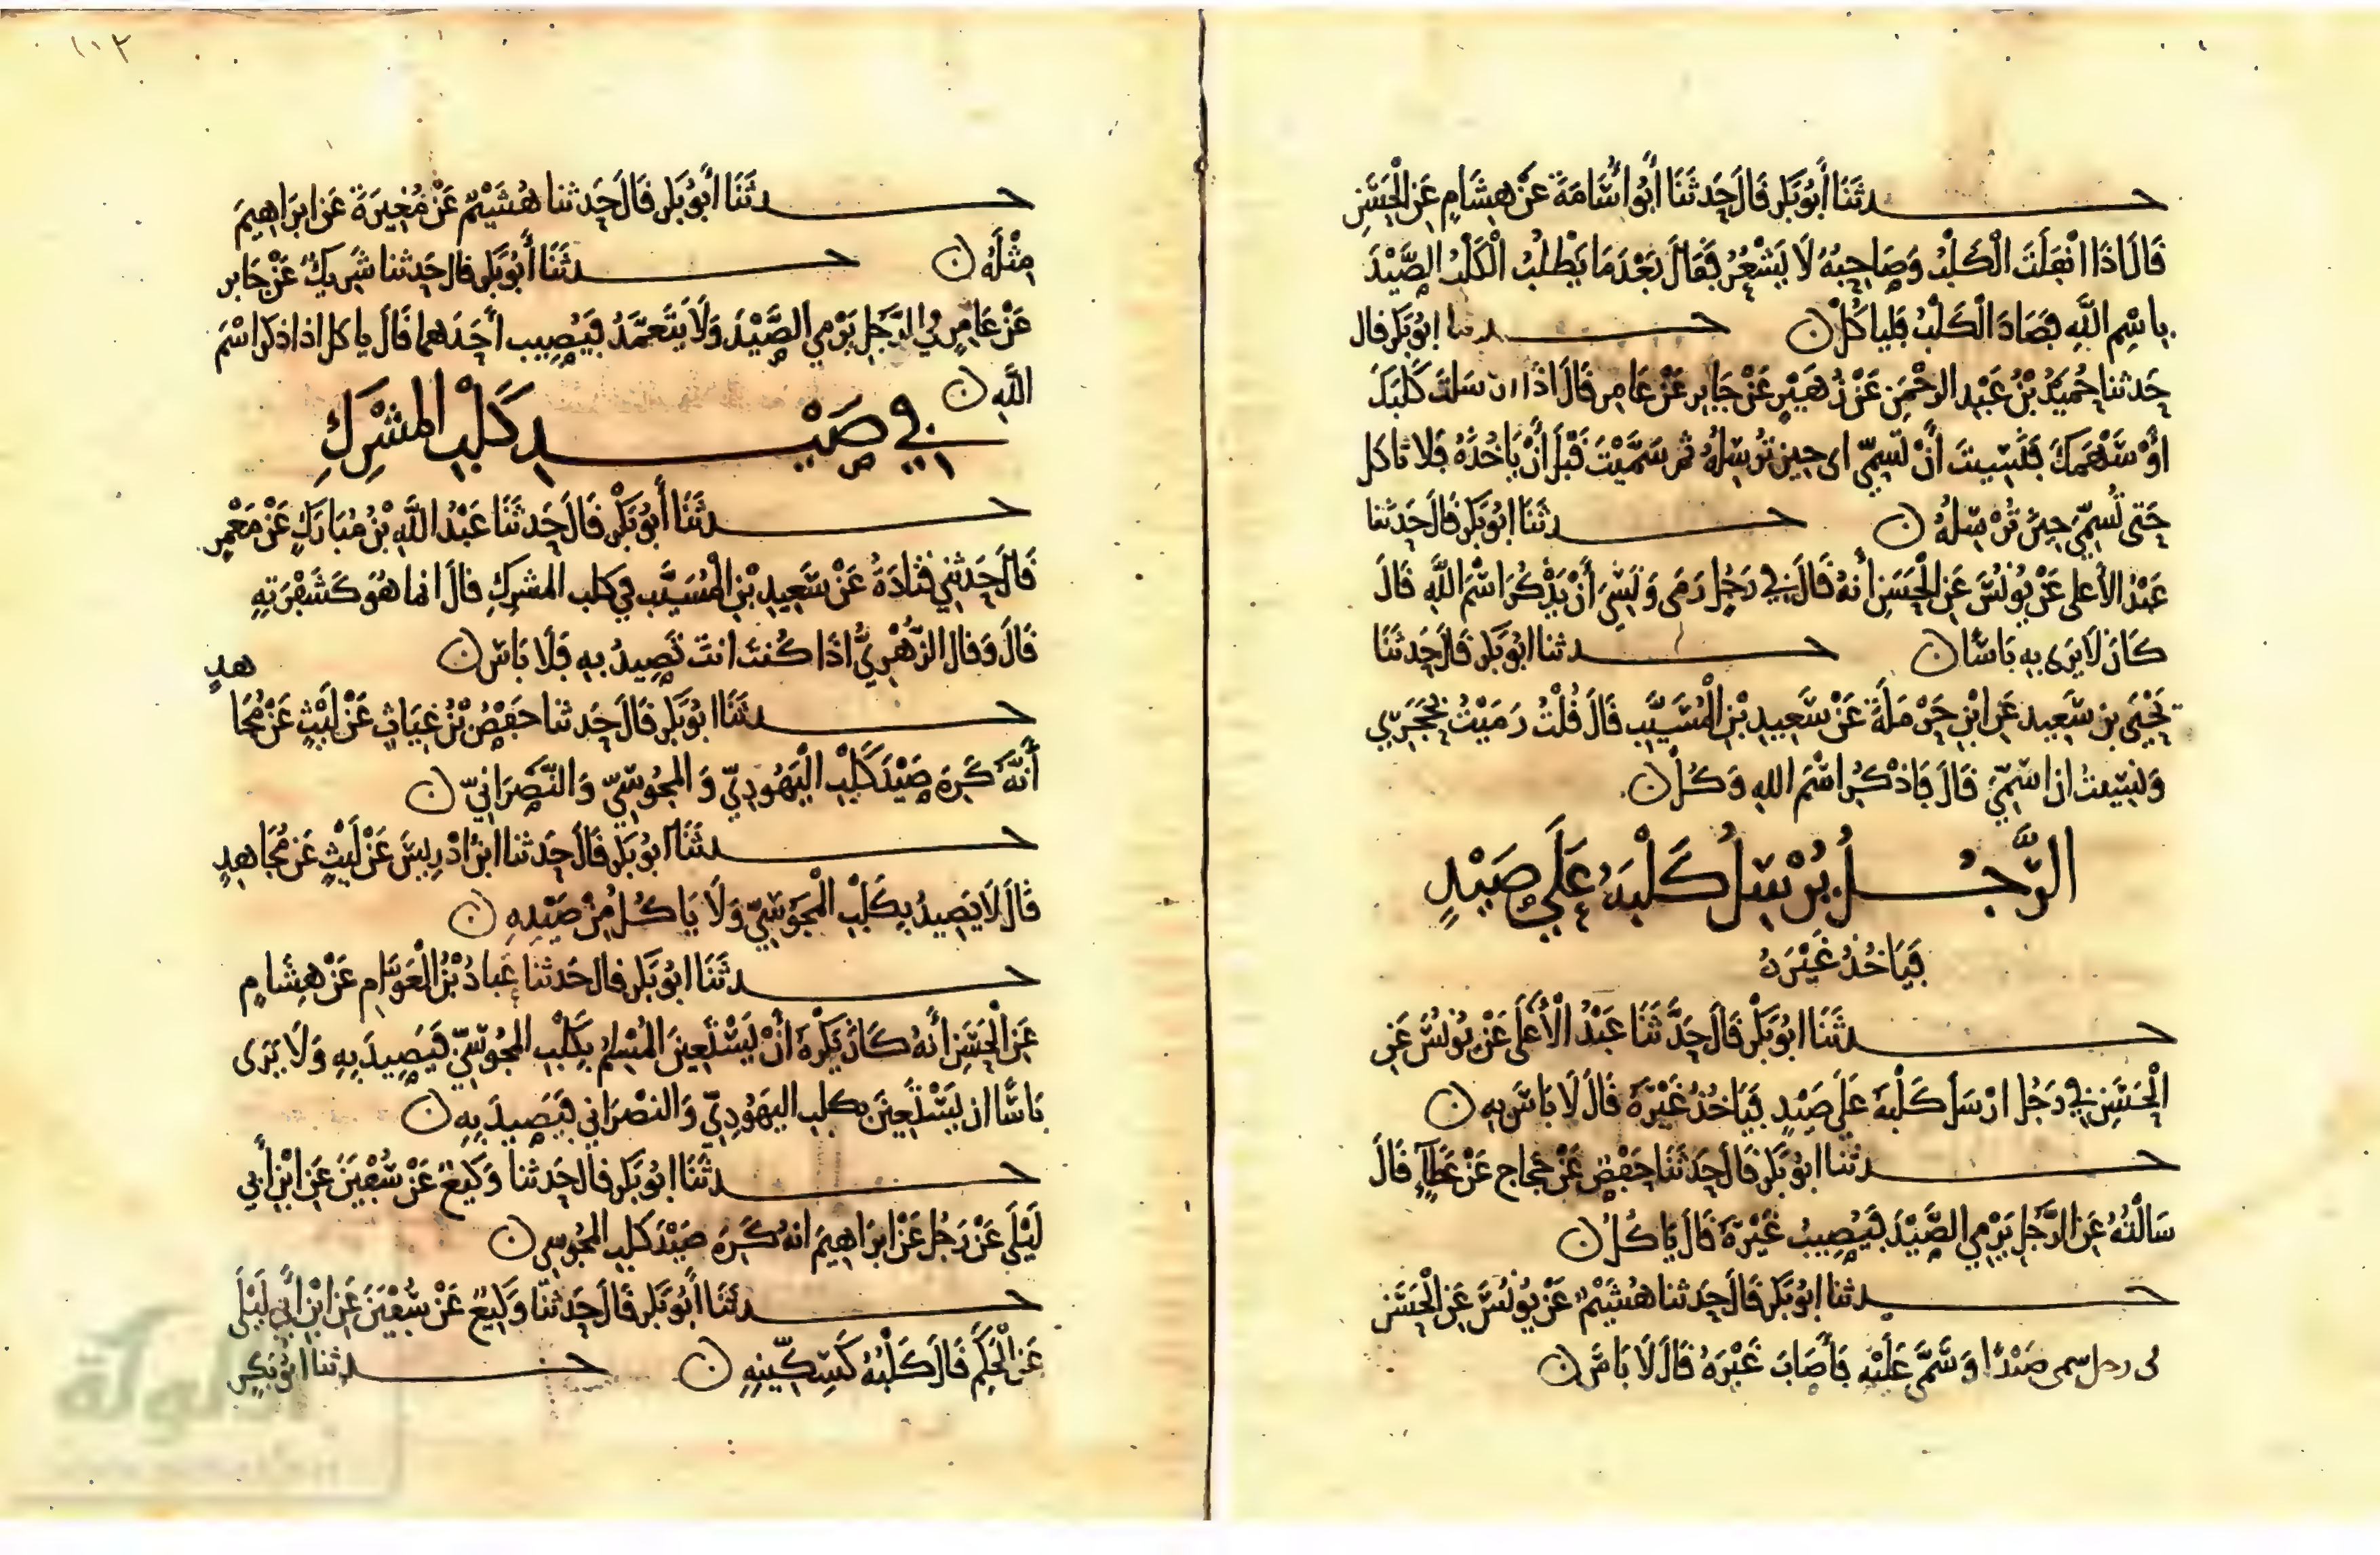 حدثَنَا أَبُو بَكْرٍ قَالَ حَدثَنَا أَبُو أُسَامَةَ عَنْ هِشَامٍ عَنِ الْحَسَنِ
قَالَ اذَا انْفَلَتَ الْكَلْبُ وَصَاحِبُهُ لَا يَشْعُرُ فَقَالَ بَعْدَ مَا يَطْلُبُ الْكَلْبُ الصَّيْدَ
بِاسْمِ اللَّهِ فَصَادَ الْكَلْبُ فَلياكُلْ ن حدثنا ابُو بَكْر قال
حَدثنا حُمَيْدُ بْنُ عَبْدِ الرحْمَنِ عَنْ زُهَيْرٍ عَنْ جَابِرٍ عَنْ عَامِرٍ قَالَ اذَا ارسَلتَ كَلْبَكَ
اوْ سَهْمَكَ فَنَسِيتَ أَنْ تُسَمِّي اى حِينَ تُرْسِلُهُ ثم سَمَّيْتَ قَبْلَ أَنْ يَاخُذَهُ فَلا تاكل
حَتى تُسَمِّيَ حِينَ تُرْسِلُهُ ن حدثَنَا ابُو بَكْرٍ قَالَ حَدثنا
عَبْدُ الأعلى عَنْ يُونُسَ عَنِ الْحَسَنِ أَنهُ قَالَ فِي رَجُلٍ رَمَى وَنَسِيَ أَنْ يَذْكُرَ اسْمَ اللَّهِ قَالَ
كَانَ لَا يَرَى بِهِ بَاسًا ن حدثنا ابُو بَكْرٍ قَالَ حَدثَنَا
يَحْيَى بن سَعِيدٍ عَنِ ابْنِ حَرْمَلَةَ عَنْ سَعِيدِ بْنِ الْمُسَيَّبِ قَالَ قُلْتُ رَمَيْتُ بِحَجَرِي
وَنَسِيتُ ان اسَمِّيَ قَالَ فَاذْكُرِ اسْمَ اللهِ وَكُلْ ن
الرَّجُلُ يُرْسِلُ كَلْبَهُ عَلَى صَيْدٍ
فَيَاخُذُ غَيْرَهُ
حدثَنَا ابُو بَكْرٍ قَالَ حَدَّثَنَا عَبْدُ الْأَعْلَى عَنْ يُونُسَ عَنِ
الْحَسَنِ فِي رَجُلٍ ارْسَلَ كَلْبَهُ عَلَى صَيْدٍ فَيَاخُذُ غَيْرَهُ قَالَ لَا بَاسَ بِهِ ن
حدثنا ابُو بَكْرٍ قَالَ حَدثَنَا حَفْصٌ عَنْ حجاج عَنْ عَطَاءٍ قَالَ
سَالْتُهُ عَنِ الرَّجُلِ يَرْمِي الصَّيْدَ فَيُصِيبُ غَيْرَهُ قَالَ يَاكُلُ ن
حدثنا ابُو بَكْرٍ قَالَ حَدثنا هُشَيْمٌ عَنْ يُونُسَ عَنِ الْحَسَنِ
فى رجل رمى صَيْدًا وَسَمَّى عَلَيْهِ فَأَصَابَ غَيْرَهُ قَالَ لَا بَاسَ ن
١١٢
حدثَنَا أَبُو بَكْرٍ قَالَ حَدثنا هُشَيْمٌ عَنْ مُغِيرَةَ عَن ابرَاهِيمَ
مِثْلَهُ ن حدثَنَا أَبُو بَكْرٍ قال حَدثنا شَرِيكٌ عَنْ جَابر
عَنْ عَامِرٍ فِي الرَّجُلِ يَرْمِي الصَّيْدَ وَلَا يَتَعَمَّدُ فَيُصِيب أَحَدَهما قَالَ ياكل اذا ذكر اسْمَ
اللَّهِ ن
فِي صَيْدِ كَلْبِ المشْرِكِ
حدثَنَا أَبُو بَكْرٍ قَالَ حَدثَنَا عَبْدُ اللَّهِ بْنُ مُبَارَكٍ عَنْ مَعْمَرٍ
قَالَ حَدثَنِي قَتَادَةُ عَنْ سَعِيدِ بْنِ الْمُسَيَّبِ فِي كلب المشرِكِ قالَ انما هُوَ كَشَفْرَتِهِ
قَالَ وَقال الزُّهْرِيُّ اذَا كُنت انتَ تَصِيدُ بِهِ فَلَا بَاسَ ن
حدثَنَا ابُو بَكْرٍ قَالَ حَدثنا حَفْصُ بْنُ غِيَاثٍ عَنْ لَيْثٍ عَنْ مُجَا هدٍ
أَنَّهُ كَرِهَ صَيْدَ كَلْبِ الْيَهُودِيِّ وَالمَجُوسِيِّ وَالنَّصْرَانِيِّ ن
حدثَنَا ابُو بَكْرٍ قَالَ حَدثنا ابنُ ادْرِيسَ عَنْ لَيْثٍ عَنْ مُجَاهِدٍ
قَالَ لَا يَصِيدُ بِكَلْبِ الْمَجُوسِيِّ وَلَا يَاكُلُ مِنْ صَيْدِهِ ن
حدثَنَا ابُو بَكْرٍ قال حَدثنا عَبادُ بْنُ الْعَوَّامِ عَنْ هِشَامٍ
عَنِ الْحَسَنِ أَنهُ كَانَ يَكْرَهُ أَنْ يَسْتَعِينَ الْمُسْلِمُ بِكَلْبِ المَجُوسِيِّ فَيَصِيدَ بِهِ وَلَا يَرَى
بَاسًا ان يَسْتَعِينَ بكلبِ اليَهُودِيِّ وَالنصْرَانِي فَيَصِيدَ بِهِ ن
حدثَنَا ابُو بَكْرٍ قالَ حَدثنا وَكِيعٌ عَنْ سُفْيَنَ عَنِ ابْنِ أَبِي
لَيْلَى عَنْ رَجُلٍ عَنْ ابرَاهِيمَ انهُ كَرِهَ صَيْدَ كَلبِ المَجُوسِي ن
حدثَنَا أَبُو بَكْرٍ قَالَ حَدثَنَا وَكِيعٌ عَنْ سُفْيَنَ عَنِ ابْنِ أَبِي لَيْلَى
عَنِ الْحَكَمِ قَالَ كَلْبُهُ كَسِكِّينِهِ ن حدثنا ابُو بَكْرٍ
الألوكة